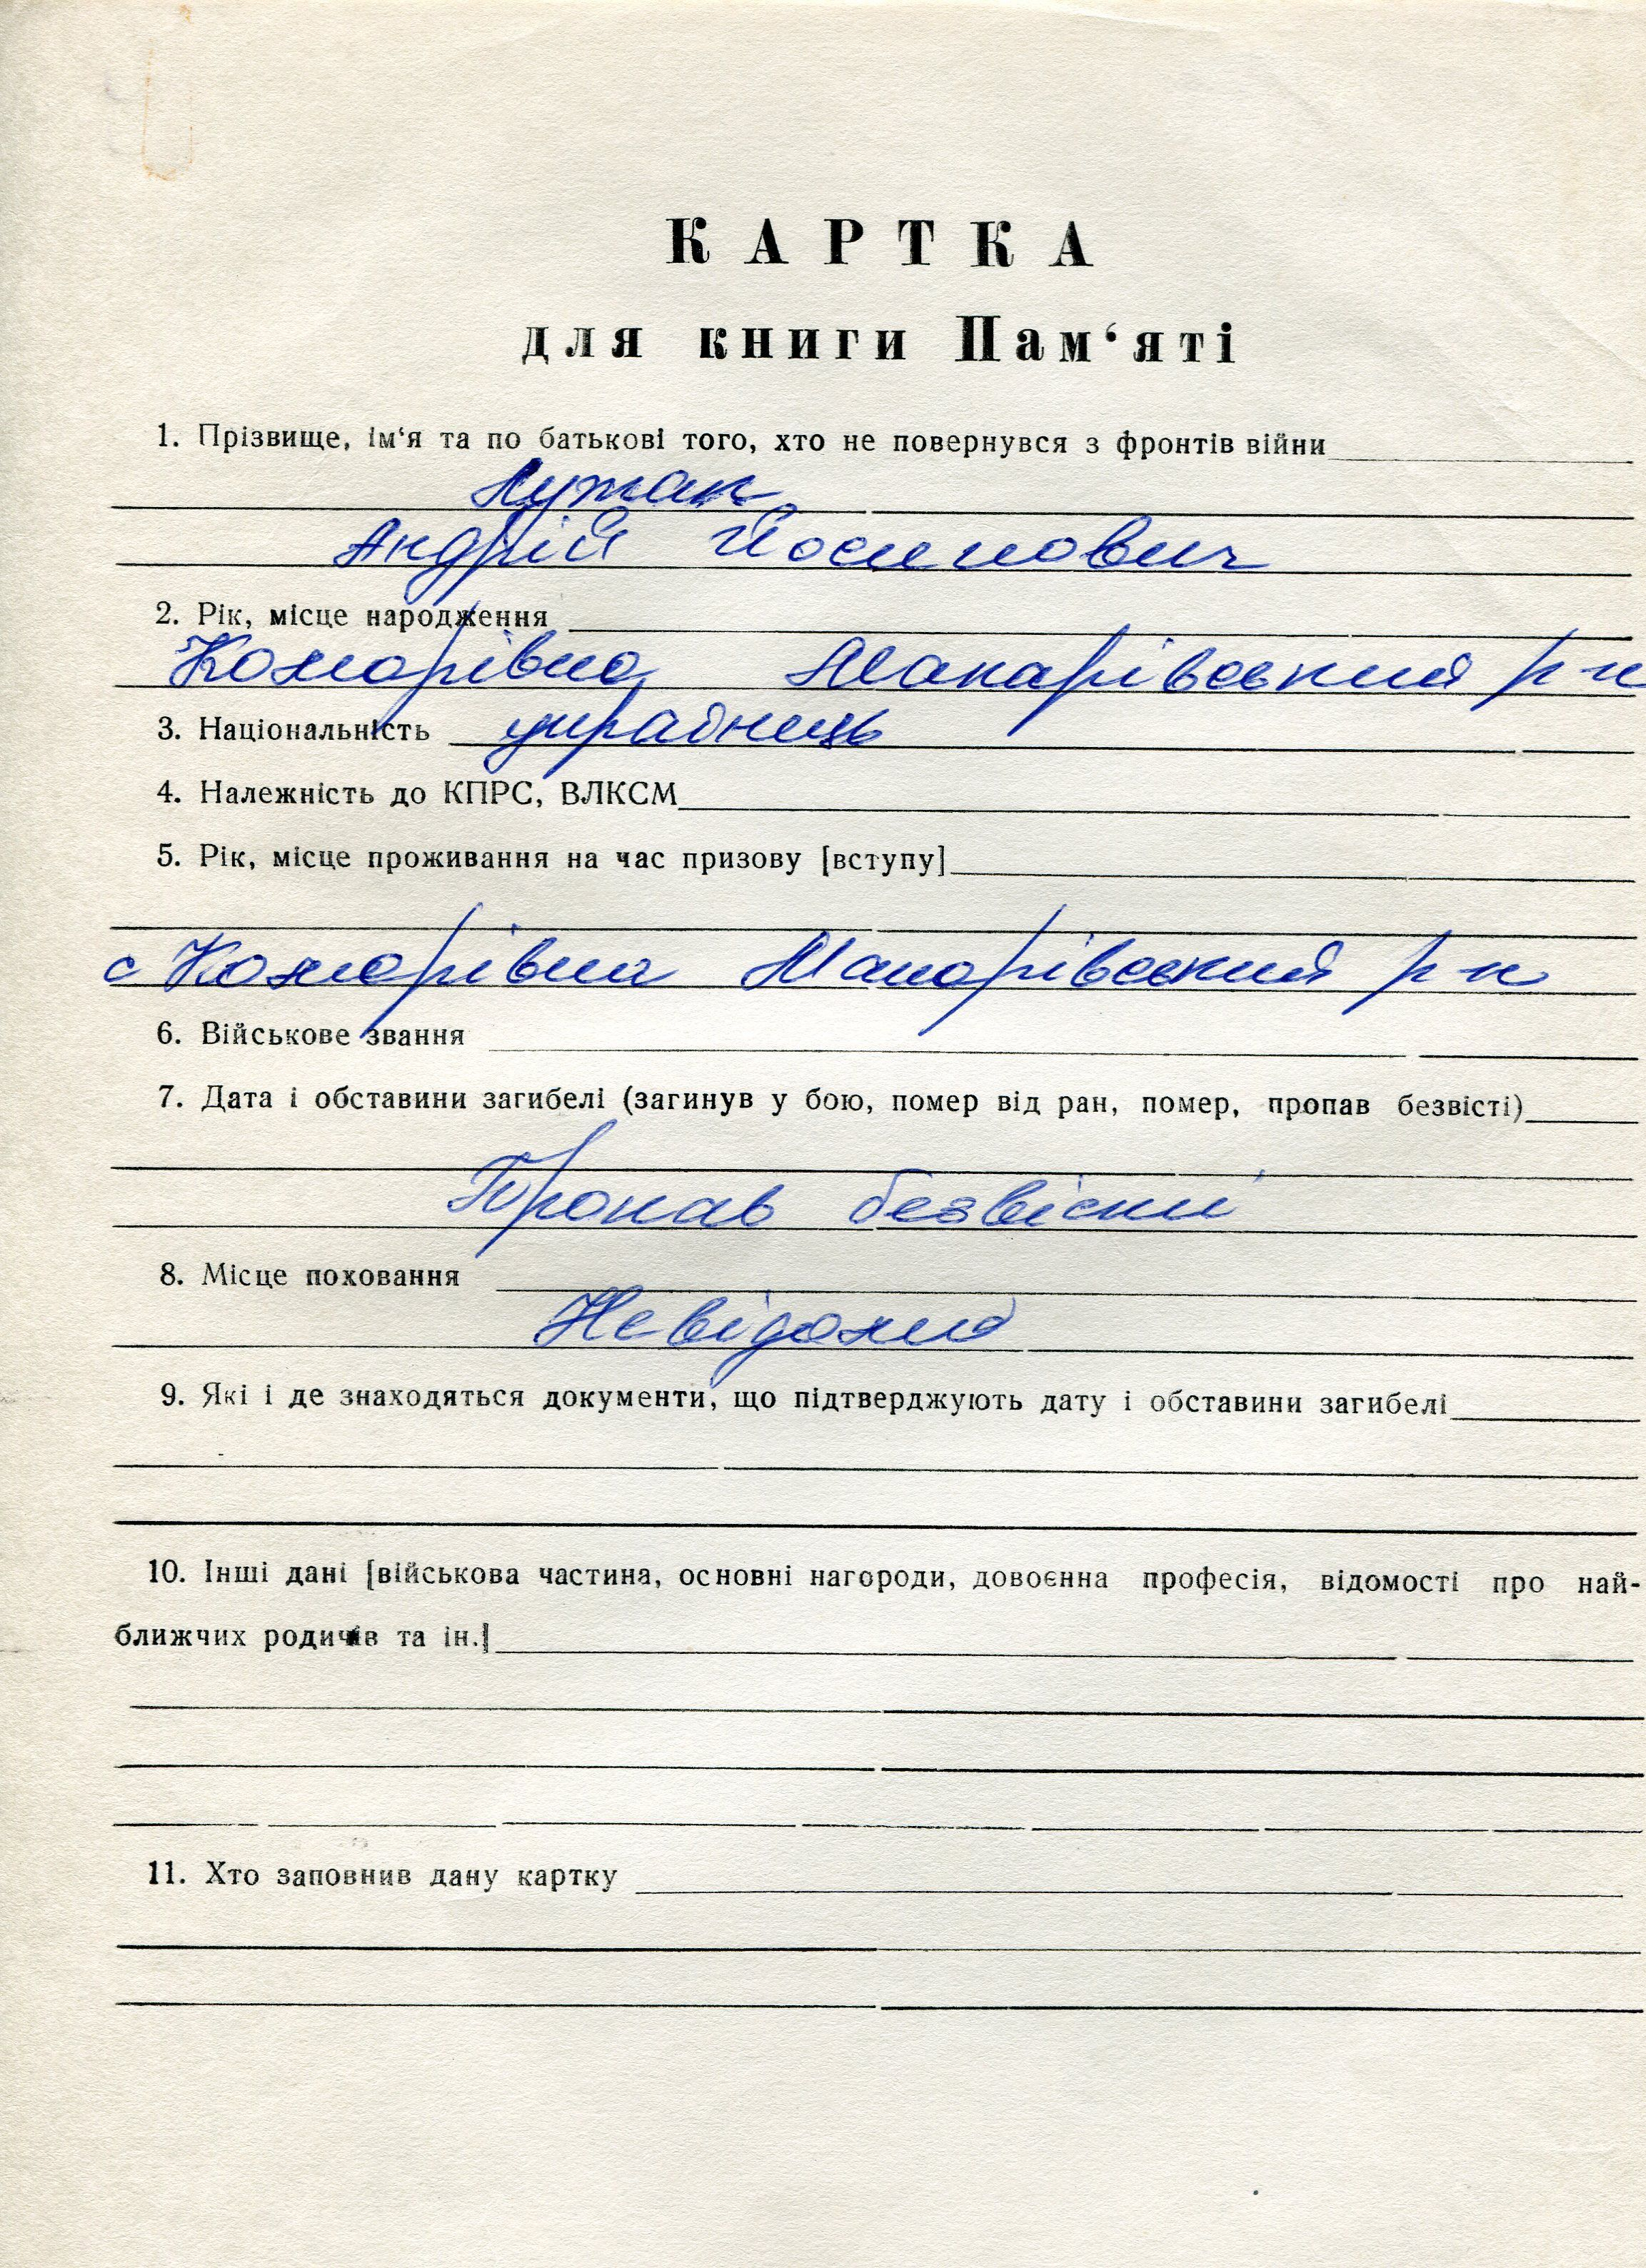 КАРТКА
для книги Пам‘яті
1. Прізвище, ім‘я та по батькові того, хто не повернувся з фронтів війни
Андрій Йосипович
2. Рік, місце народження
Комарівка Макарівський р-н
3. Національність українець
4. Належність до КПРС, ВЛКСМ
5. Рік, місце проживання на час призову [вступу]
с Комарівка Макарівський р-н
6. Військове звання
7. Дата і обставини загибелі (загинув у бою, помер від ран, помер, пропав безвісті)
Пропав безвісти
8. Місце поховання
Невідомий
9. Які і де знаходяться документи, що підтверджують дату і обставини загибелі
10. Інші дані [військова частина, основні нагороди, довоєнна професія, відомості про най-
ближчих родичів та ін.]
11. Хто заповнив дану картку